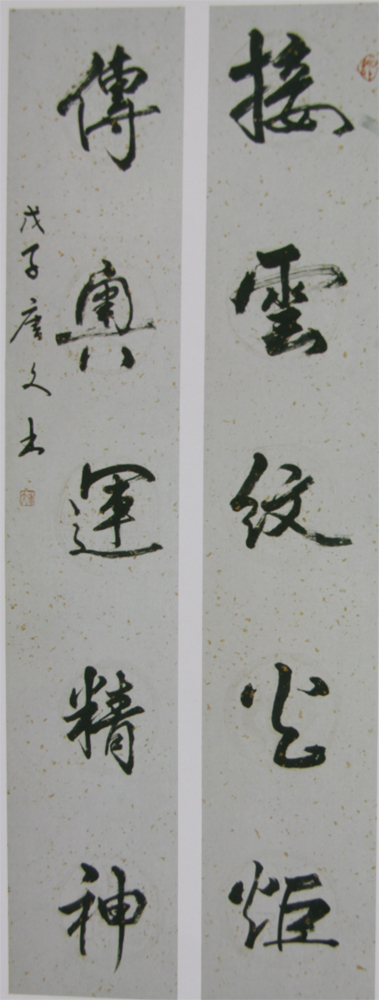 接雲紋火炬
傳奧運精神
戊子唐文书